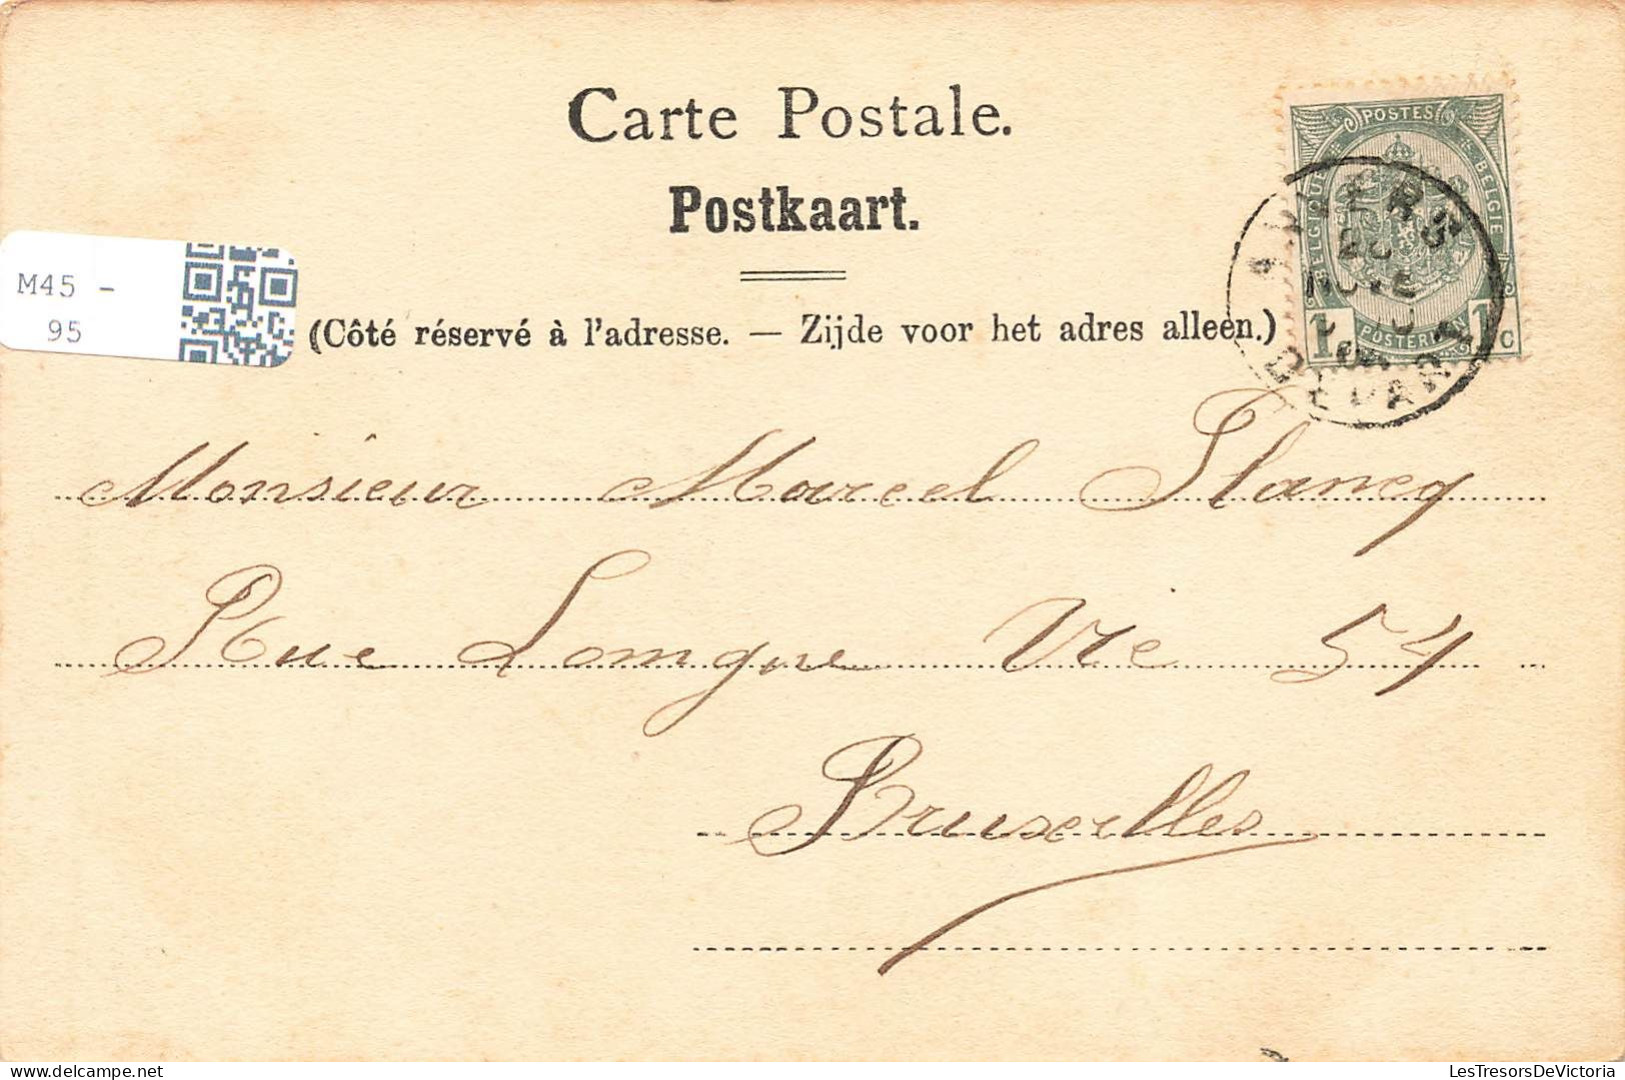 Carte Postale.
Postkaart.
M45 -
95
(Côté réservé à l'adresse. — Zijde voor het adres alleen.)
POSTES
BELGIQUE
BELGIE
POSTERIJEN
1 1 c
ANVERS
DEPART
Monsieur Marcel Plancq
Rue Longue Vie 54
Bruxelles
LesTresorsDeVictoria